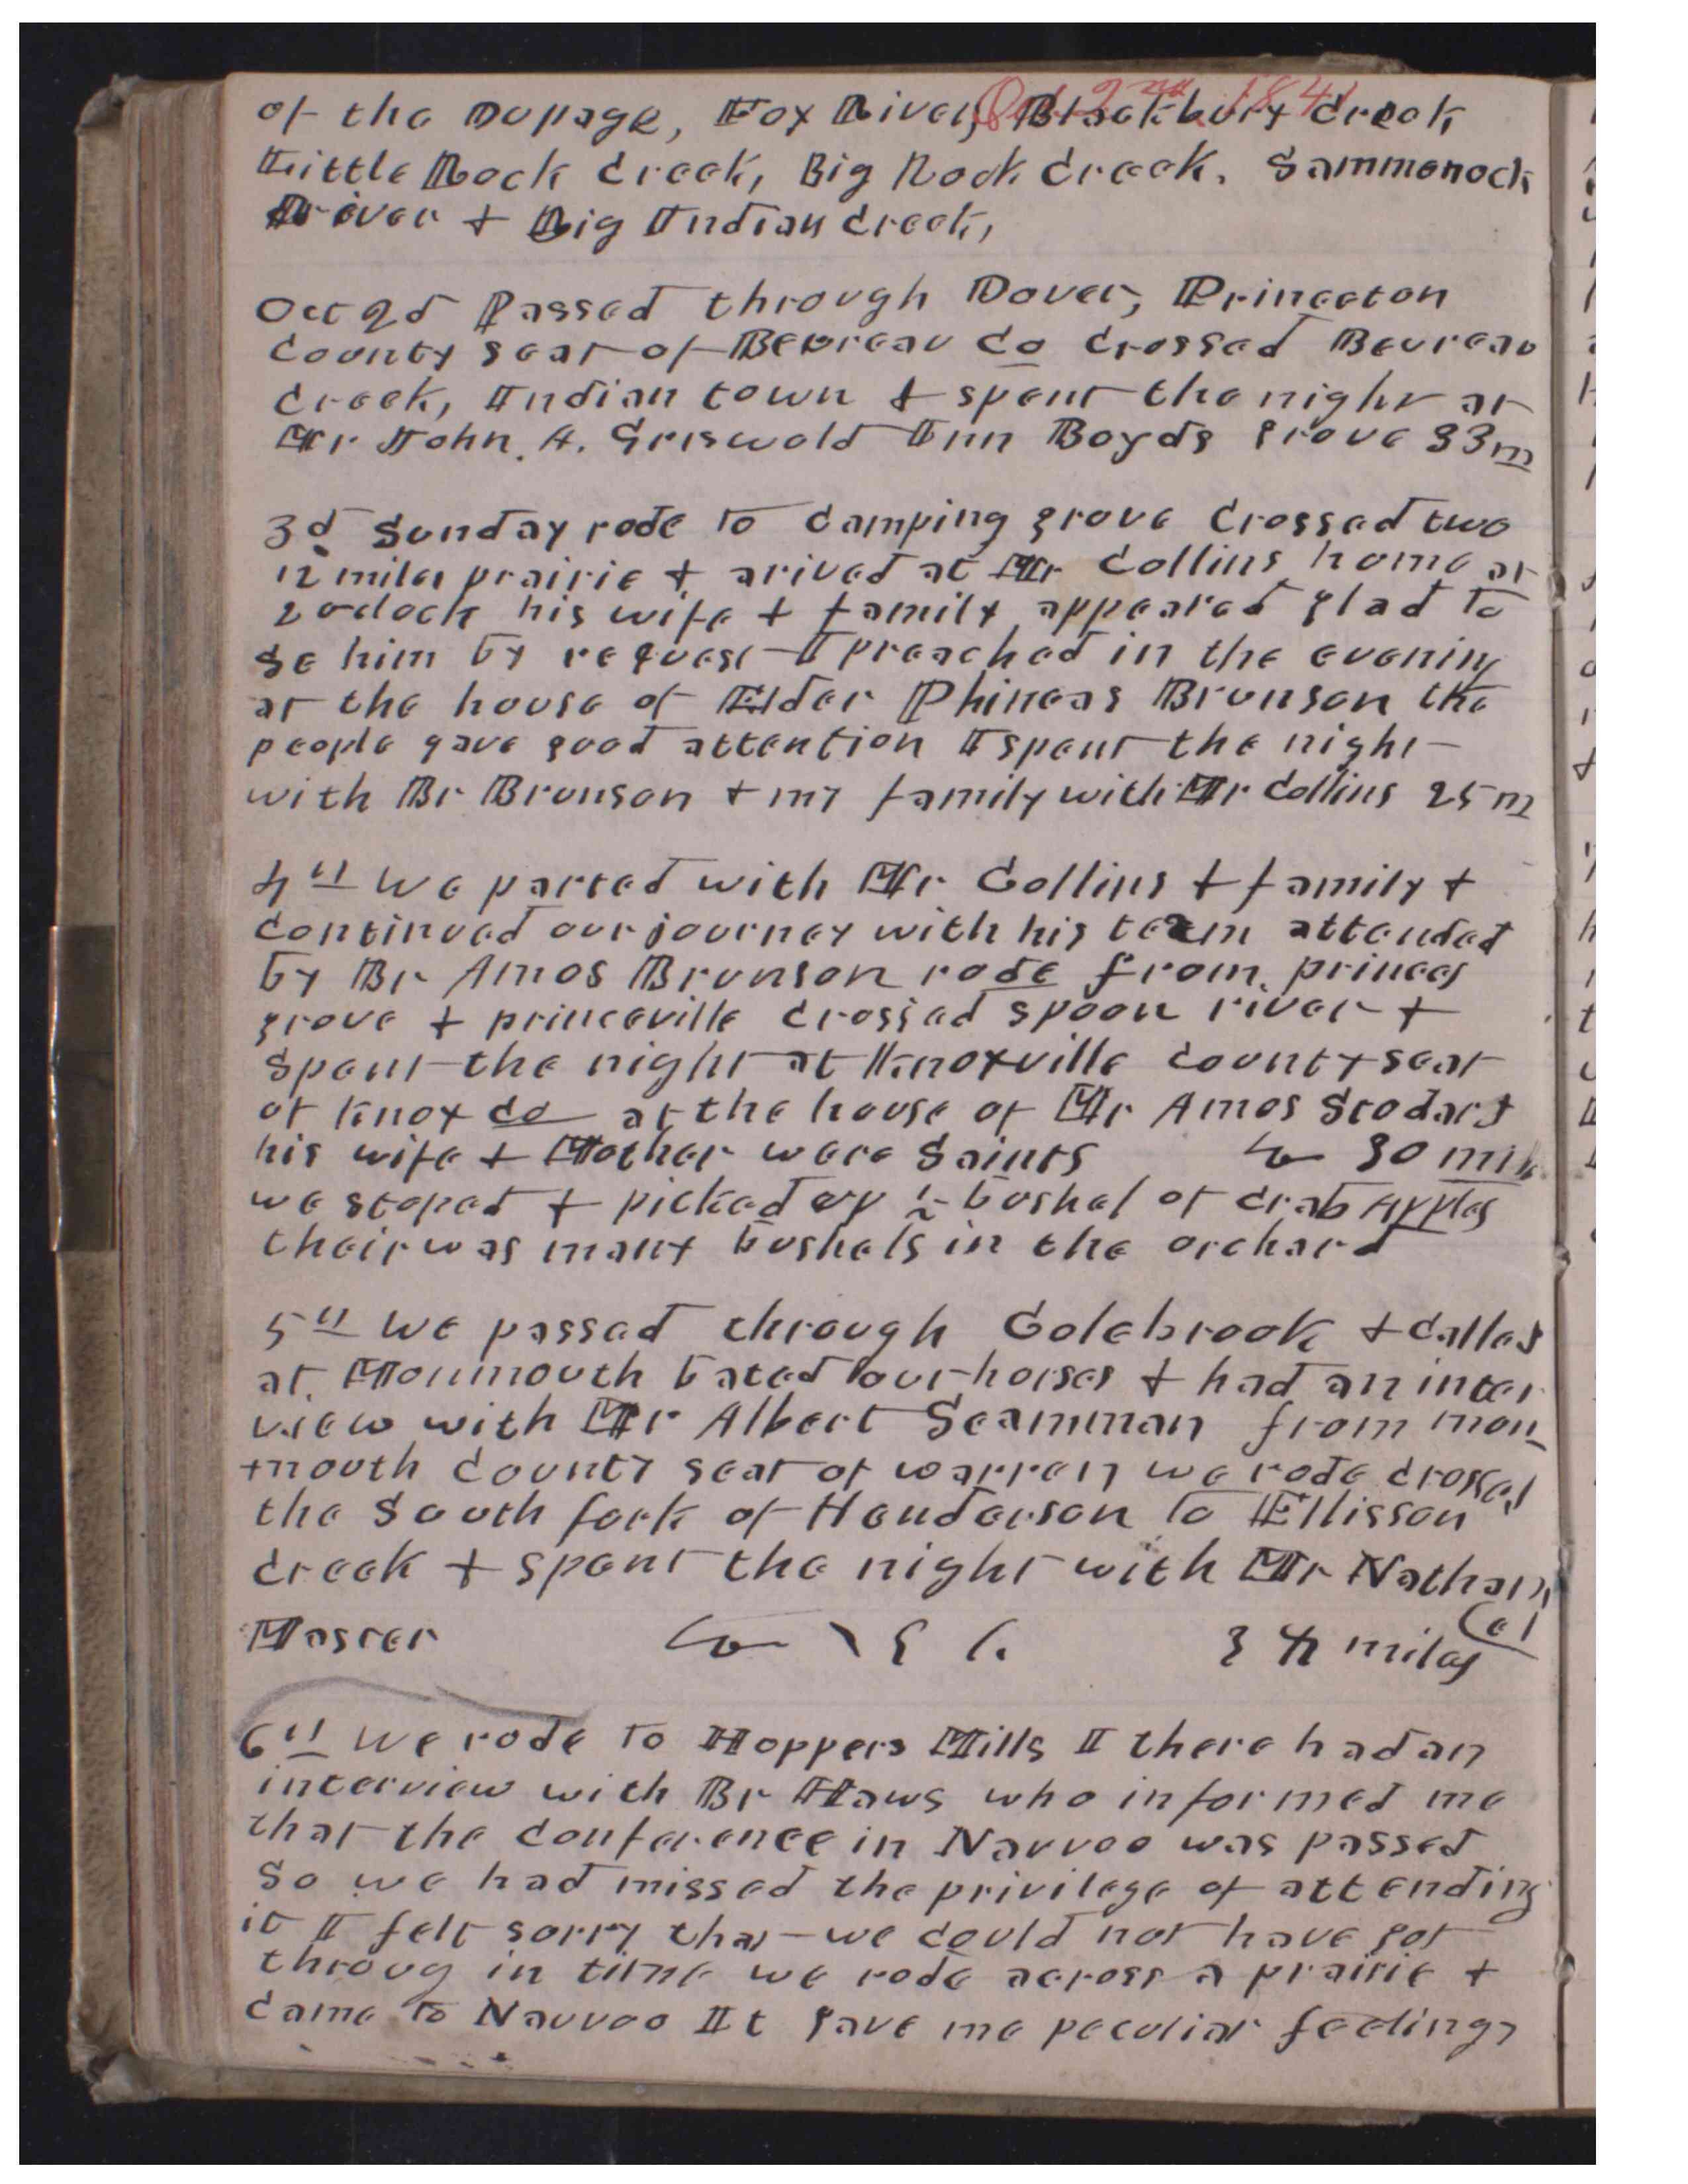 Oct 2nd 1841
of the Dupage, Fox River, Blackbury Creek
Little Rock Creek, Big Rock Creek. Sammonock
River + Big Indian Creek,
Oct 2d Passed through Dover, Princeton
County seat of Beureau Co Crossed Beureau
Creek, Indian town & spent the night at
Mr John. A. Griswold Inn Boyds grove 33m
3d Sunday rode to Camping grove Crossed two
12 miles prairie + arived at Mr Collins home at
2 oclock his wife + family appeared glad to
se him by request I preached in the evening
at the house of Elder Phineas Brunson the
people gave good attention I spent the night
with Br Brunson + my family with Mr Collins 25 m
4th We parted with Mr Collins + family +
continued our journey with his team attended
by Br Amos Brunson rode from princes
grove + princeville Crossed spoon river +
Spent the night at Knoxville County seat
of Knox Co at the house of Mr Amos Stodard
his wife + Mother were Saints 30 mile
we stoped + picked up ½ bushel of crab Apples
their was many bushels in the orchard
5th We passed through Colebrook + Called
at Monmouth bated our horses + had an inter
view with Mr Albert Scamman from mon
mouth County seat of warren we rode crossed
the South fork of Henderson to Ellisson
Creek + spent the night with Mr Nathan
iel
Master 34 miles
6th We rode to Hoppers Mills I there had an
interview with Br Haws who informed me
that the conference in Nauvoo was passed
So we had missed the privilege of attending
it I felt sorry that we could not have got
throug in time we rode across a prairie +
Came to Nauvoo It gave me peculiar feelings